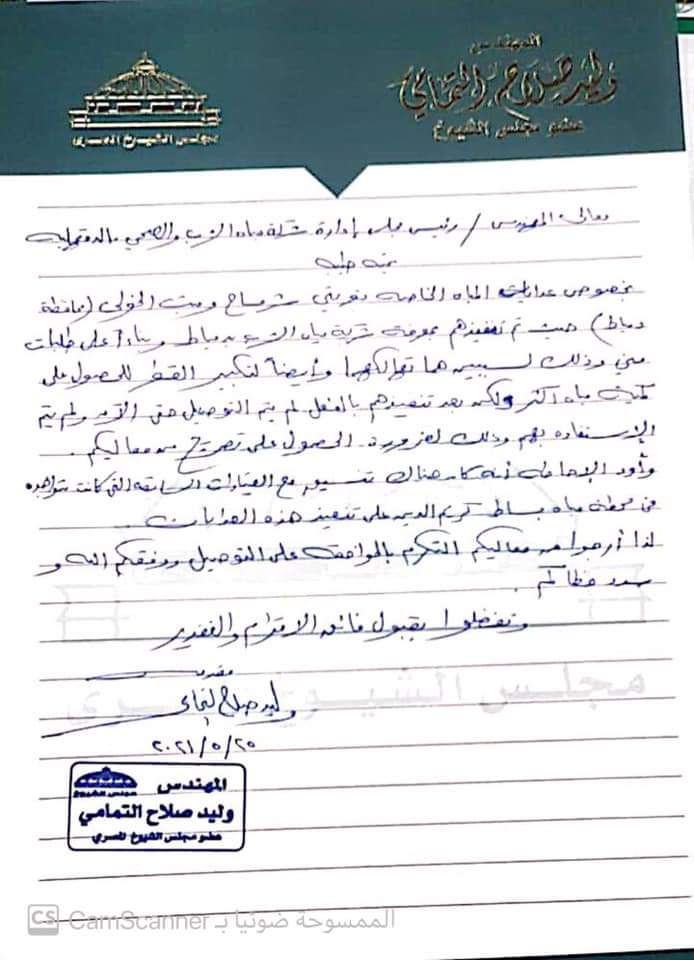 المهندس
وليد صلاح التمامي
عضو مجلس الشيوخ
مجلس الشيوخ المصري
معالي المهندس / رئيس مجلس إدارة شركة مياه الشرب والصحي بالدقهلية
تحية طيبة
بخصوص عدايات المياه الخاصة بقريتي شرمساح وميت الخولي (محافظة
دمياط) حيث تم تنفيذهم بمعرفة شركة مياه الشرب بدمياط وبناءاً على طلبات
مني وذلك لسببين هما تهالكهما وأيضاً لتكبير القطر للحصول على
كمية مياه أكثر ولكن بعد تنفيذهم بالفعل لم يتم التوصيل حتى الآن ولم يتم
الإستفادة بهم وذلك لضرورة الحصول على تصريح من معاليكم .
وأود الإحاطة أنه كان هناك تنسيق مع القيادات السابقة التي كانت متواجدة
في محطة مياه بساط كريم الدين على تنفيذ هذه العدايات .
لذا أرجوا من معاليكم التكرم بالموافقة على التوصيل ووفقكم الله و
سدد خطاكم .
وتفضلوا بقبول فائق الاحترام والتقدير
وليد صلاح التمامي
٢٠٢١/٥/٢٥
المهندس
مجلس الشيوخ
وليد صلاح التمامي
عضو مجلس الشيوخ المصري
مجلس الشيوخ المصري
CS الممسوحة ضوئيا بـ CamScanner